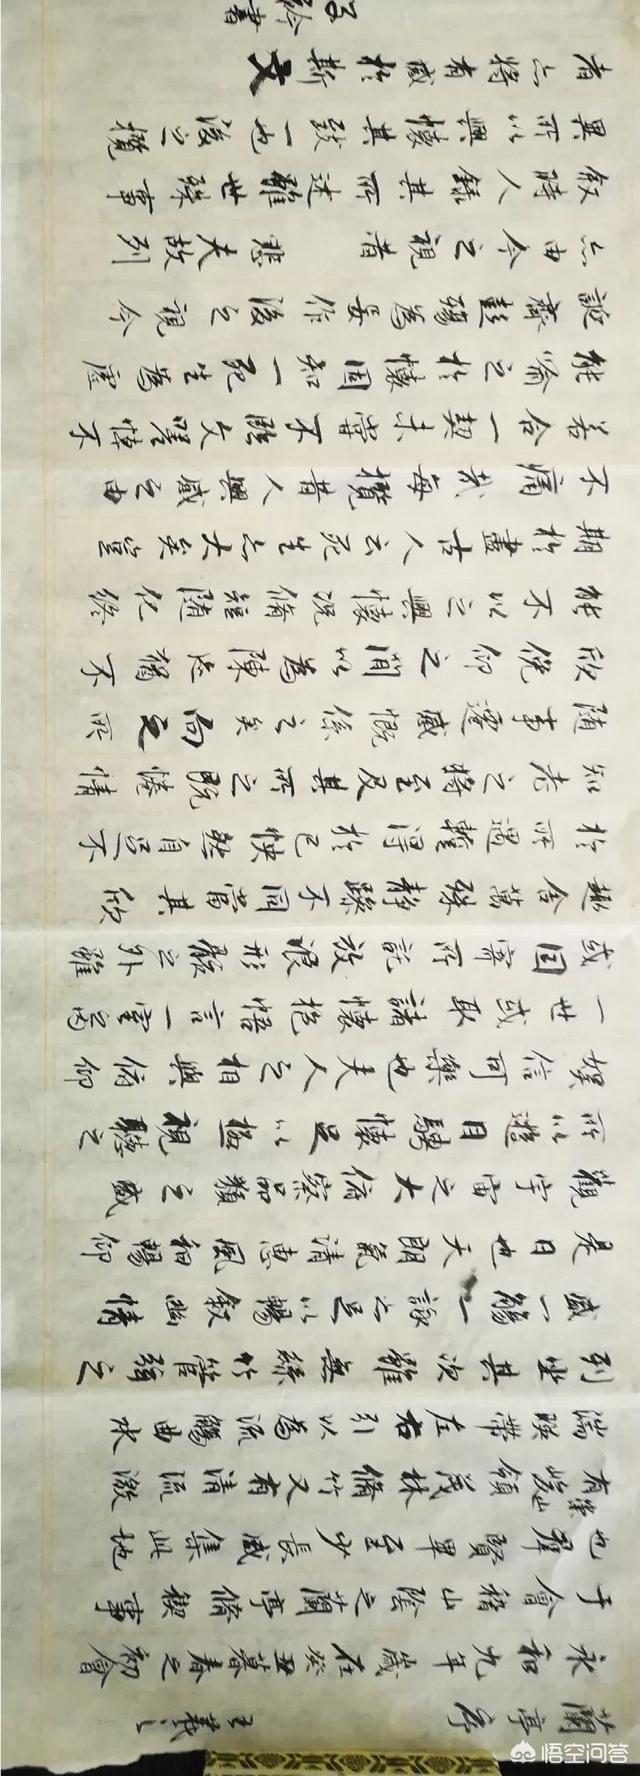 蘭亭序 王羲之
永和九年歲在癸丑暮春之初會
于會稽山陰之蘭亭脩禊事
也群賢畢至少長咸集此地
有崇山峻領茂林脩竹又有清流激
湍暎帶左右引以為流觴曲水
列坐其次雖無絲竹管弦之
盛一觴一詠亦足以暢敘幽情
是日也天朗氣清惠風和暢仰
觀宇宙之大俯察品類之盛
所以遊目騁懷足以極視聽之
娛信可樂也夫人之相與俯仰
一世或取諸懷抱悟言一室之內
或因寄所託放浪形骸之外雖
趣舍萬殊靜躁不同當其欣
於所遇暫得於己快然自足不
知老之將至及其所之既惓情
隨事遷感慨係之矣向之所
欣俛仰之間以為陳迹猶不
能不以之興懷況脩短隨化終
期於盡古人云死生亦大矣豈
不痛哉每攬昔人興感之由
若合一契未嘗不臨文嗟悼不
能喻之於懷固知一死生為虛
誕齊彭殤為妄作後之視今
亦由今之視昔 悲夫故列
敘時人錄其所述雖世殊事
異所以興懷其致一也後之攬
者亦將有感於斯文
書
悟空问答